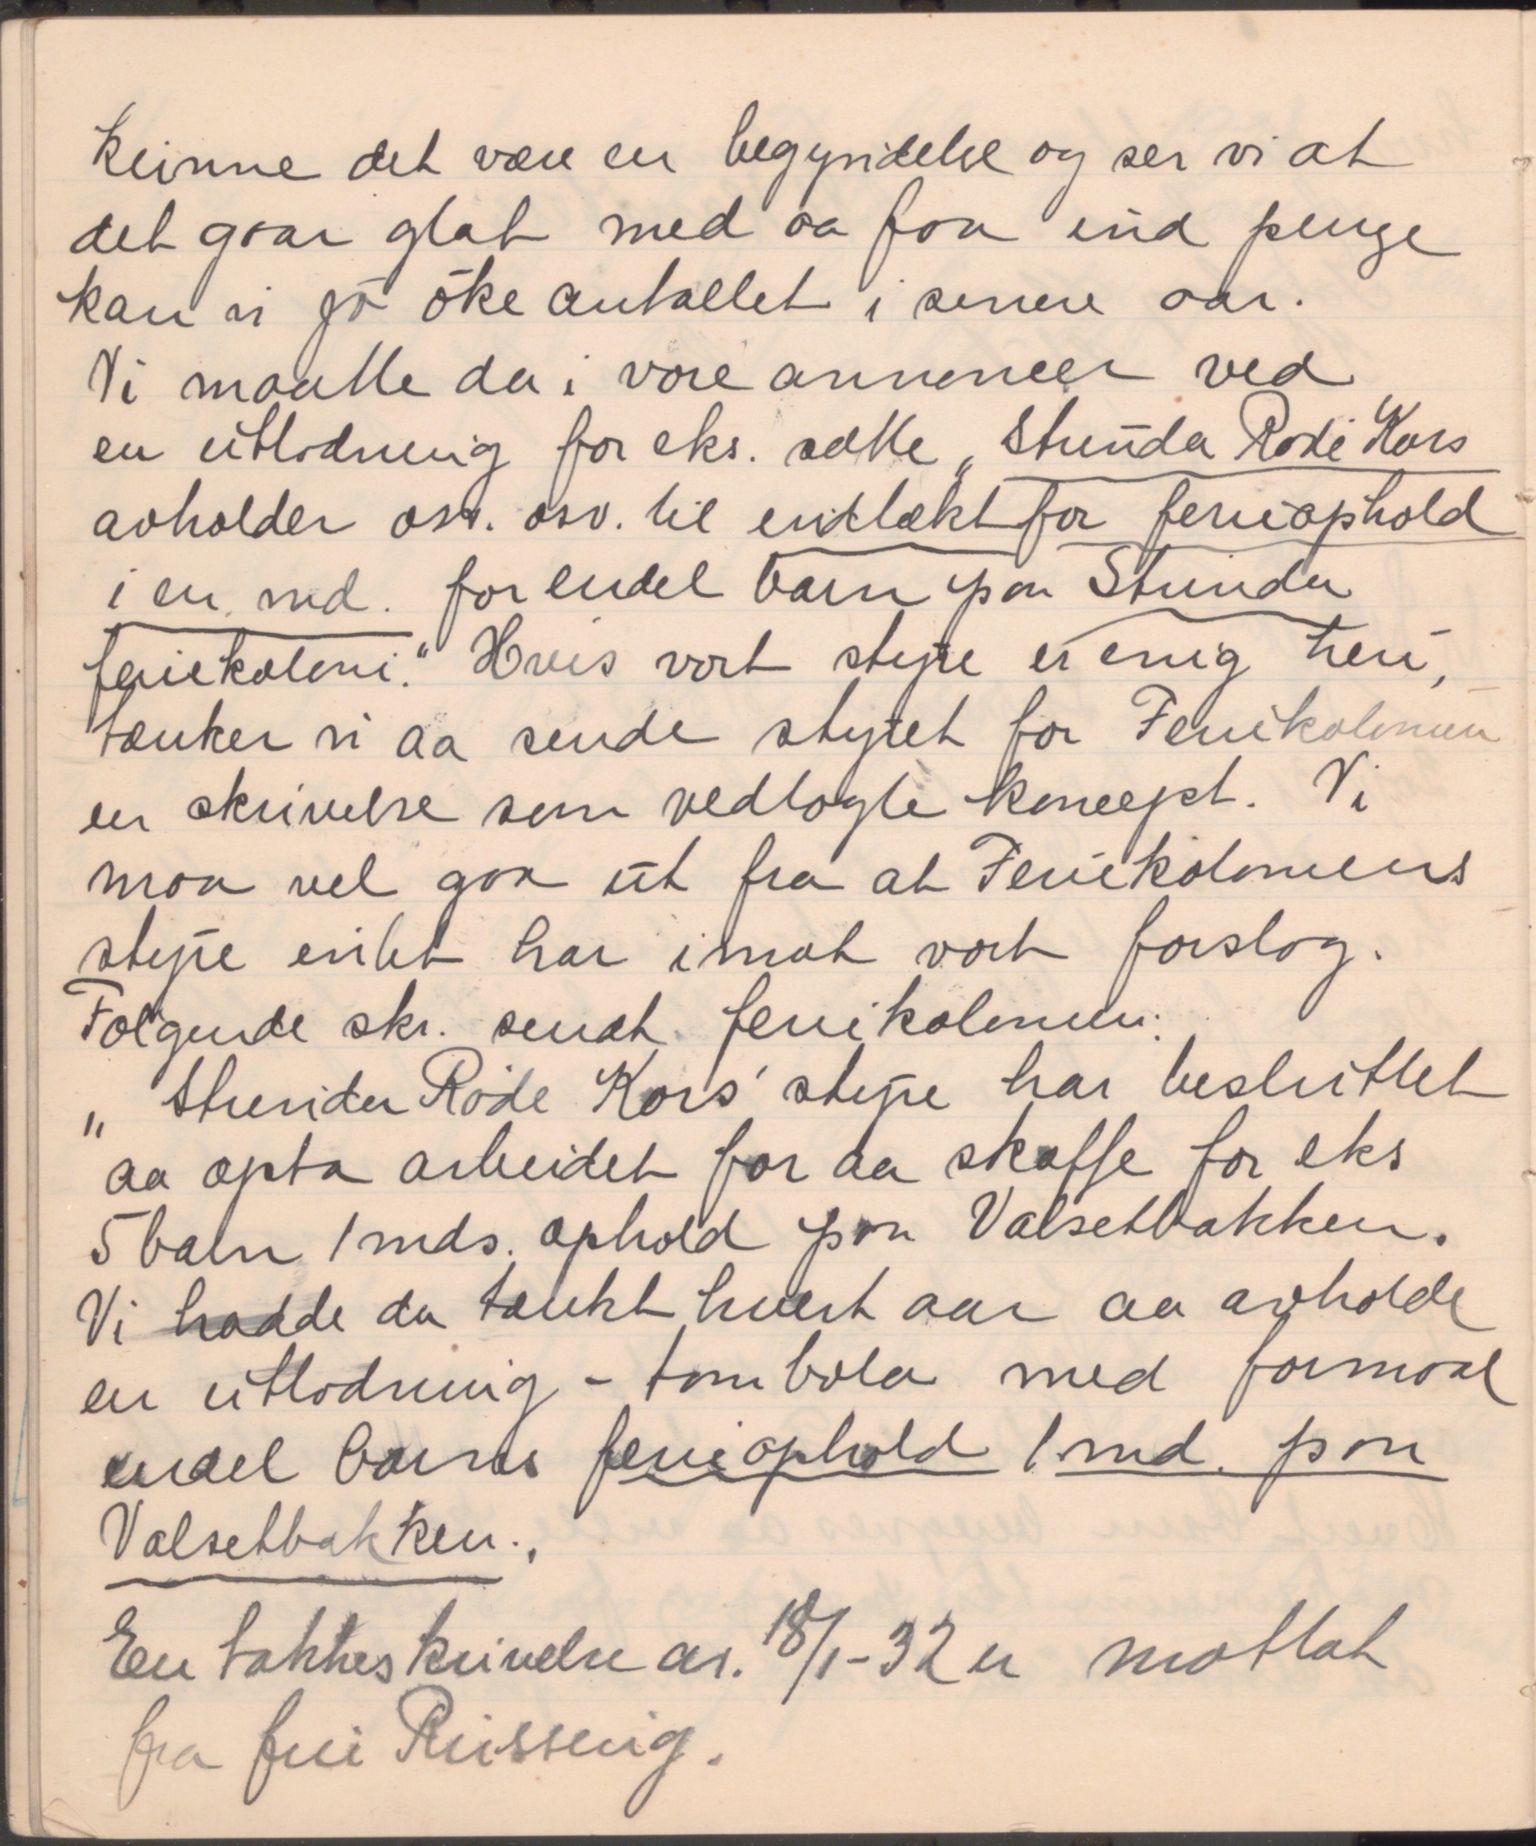 kunne det være en begyndelse og ser vi at
det gaar glat med aa faa ind penge
kan vi jo øke antallet i senere aar.
Vi maatte da i vore annoncer ved
en utlodning for eks. sætte „Strinda Røde Kors
avholder osv. osv. til indtækt for ferieophold
i en md. for endel barn paa Strinda
feriekoloni." Hvis vort styre er enig heri,
tænker vi aa sende styret for Feriekolonien
en skrivelse som vedlagte koncept. Vi
maa vel gaa ut fra at Feriekoloniens
styre intet har imot vort forslag.
Følgende skr. sendt feriekolonien:
„Strinda Røde Kors' styre har besluttet
aa opta arbeidet for aa skaffe for eks
5 barn 1 mds. ophold paa Valsetbakken.
Vi hadde da tænkt hvert aar aa avholde
en utlodning - tombola med formaal
endel barns ferieophold 1 md. paa
Valsetbakken.
En takkeskrivelse av. 18/1-32 er mottat
fra fru Russing.